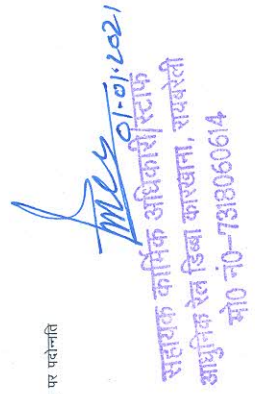 पर पदोन्नति
01-01-2021
सहायक कार्मिक अधिकारी/स्टाफ
आधुनिक रेल डिब्बा कारखाना, रायबरेली
मो0 नं0-7318060614